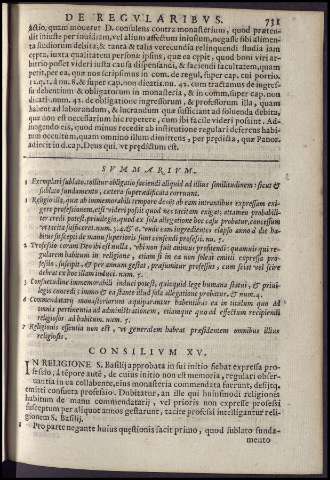 DE REGVLARIBVS. 731
actio, quam mouetur D. consulens contra monasterium, quod præten-
dit iniuste per uasidium, vel alium affectum iniustum, negasse sibi alimen-
ta studiorum debita,& tanta & talis verecundia relinquendi studia iam
cepta, iuxta qualitatem personæ ipsius, quæ ea cepit, quod boni viri ar-
bitrio posset videri iusta causa dispensandi, & faciendi facultatem, quam
petit, per ea, quæ nos scripsimus in com. de regul, super cap. cui portio.
12.q.1. num. 8. & super cap. non dicatis. nu. 43. cum tractamus de ingres-
su debentium & obligatorum in monasteria, & in comm. super cap. non
dicatis. num. 43. de obligatione ingressorum, & professorum illa, quam
habent ad laborandum, & lucrandum quæ sufficiant ad soluenda debita,
quæ non est necessarium hic repetere, cum ibi facile videri possint. Ad-
iungendo eis, quod minus recedit ab institutione regulari deferens habi-
tum occultum, quam omnino illum dimittens, per prædicta, quæ Panor.
adiecit in d.cap. Deus qui. vt prædictum est.
SVMMARIVM.
1 Exemplari sublato, tollitur obligatio faciendi aliquid ad illius similitudinem: sicut &
sublato fundamento, cætera superædificata corruunt.
2 Religio illa, quæ ab immemorabili tempore de eo, ab eam intrantibus expressam exi-
gere professionem, est videre possit quod nos tacitam exigat; attamen probabili-
ter credi potest, priuilegio, quod ex sola allegatione hoc casu probatur, concessum
vt tacita sufficeret. num. 3.4.& 6. vnde eam ingredientes elapso anno à die ha-
bitus suscepti de manu superioris sunt censendi professi. nu. 5.
3 Professio coram Deo ibi est nulla, vbi non fuit animus profitendi: quamuis qui re-
gularem habitum in religione, etiam si in ea non soleat emitti expressa pro-
fessio, suscepit, & per annum gestat, præsumitur professus, cum sciat vel scire
debeat ex hoc illam induci. num. 5.
5 Consuetudine immemorabili induci potest, quicquid lege humana statui, & priui-
legio concedi: immo & ex stante illud sola allegatione probatur, & num.4.
6 Commendatarij monasteriorum æquiparantur habentibus ea in titulum quo ad
omnia pertinentia ad administrationem, etiamque quo ad effectum recipiendi
religiosos ad habitum. num. 5.
7 Religionis essentia non est, vt generalem habeat præsidentem omnibus illius
religiosis.
CONSILIVM XV.
IN RELIGIONE S. Basilij approbata in sui initio fiebat expressa pro-
fessio, à tẽpore autẽ, de cuius initio non est memoria, regulari obser-
uantia in ea collabente, eius monasteria commendata fuerunt, desijtq;
emitti consueta professio. Dubitatur, an ille qui huiusmodi religionis
habitum de manu commendatarij, vel prioris non expresse professi
susceptum per aliquot annos gestarunt, tacite professi intelligantur reli-
gionem S. Basilij.
1 Pro parte negante huius quæstionis facit primo, quod sublato funda-
mento